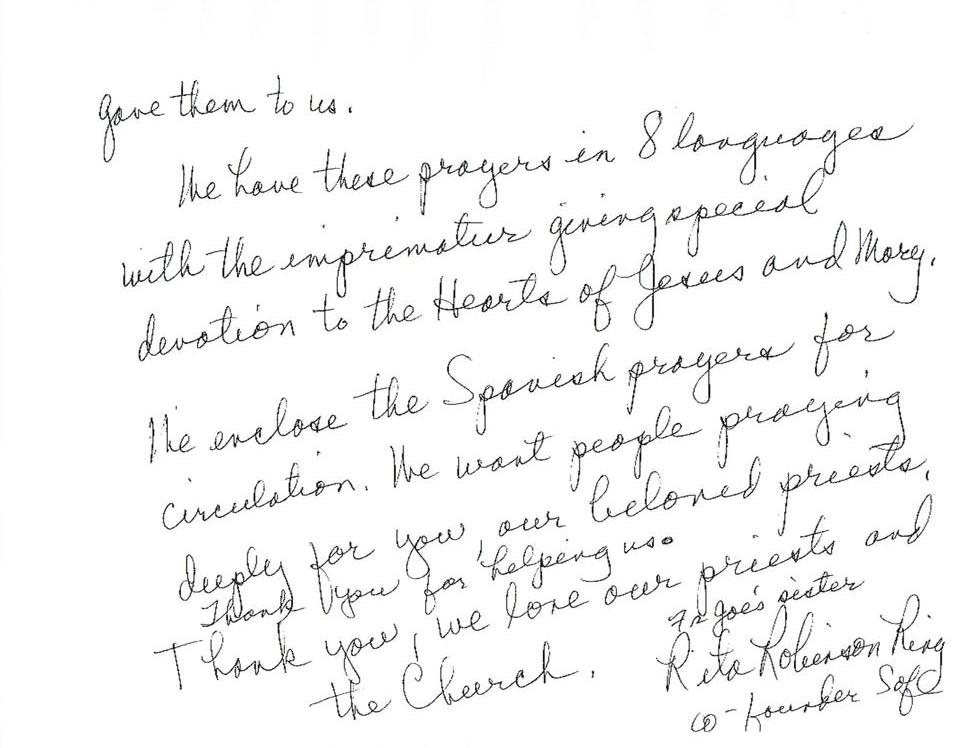 gave them to us.
We have these prayers in 8 languages
with the imprimatur giving special
devotion to the Hearts of Jesus and Mary.
We enclose the Spanish prayers for
circulation. We want people praying
deeply for you, our beloved priests.
Thank you for helping us.
Thank you, we love our priests and
the Church.
Fr Joe's sister
Rita Robinson Ring
co-founder SofC